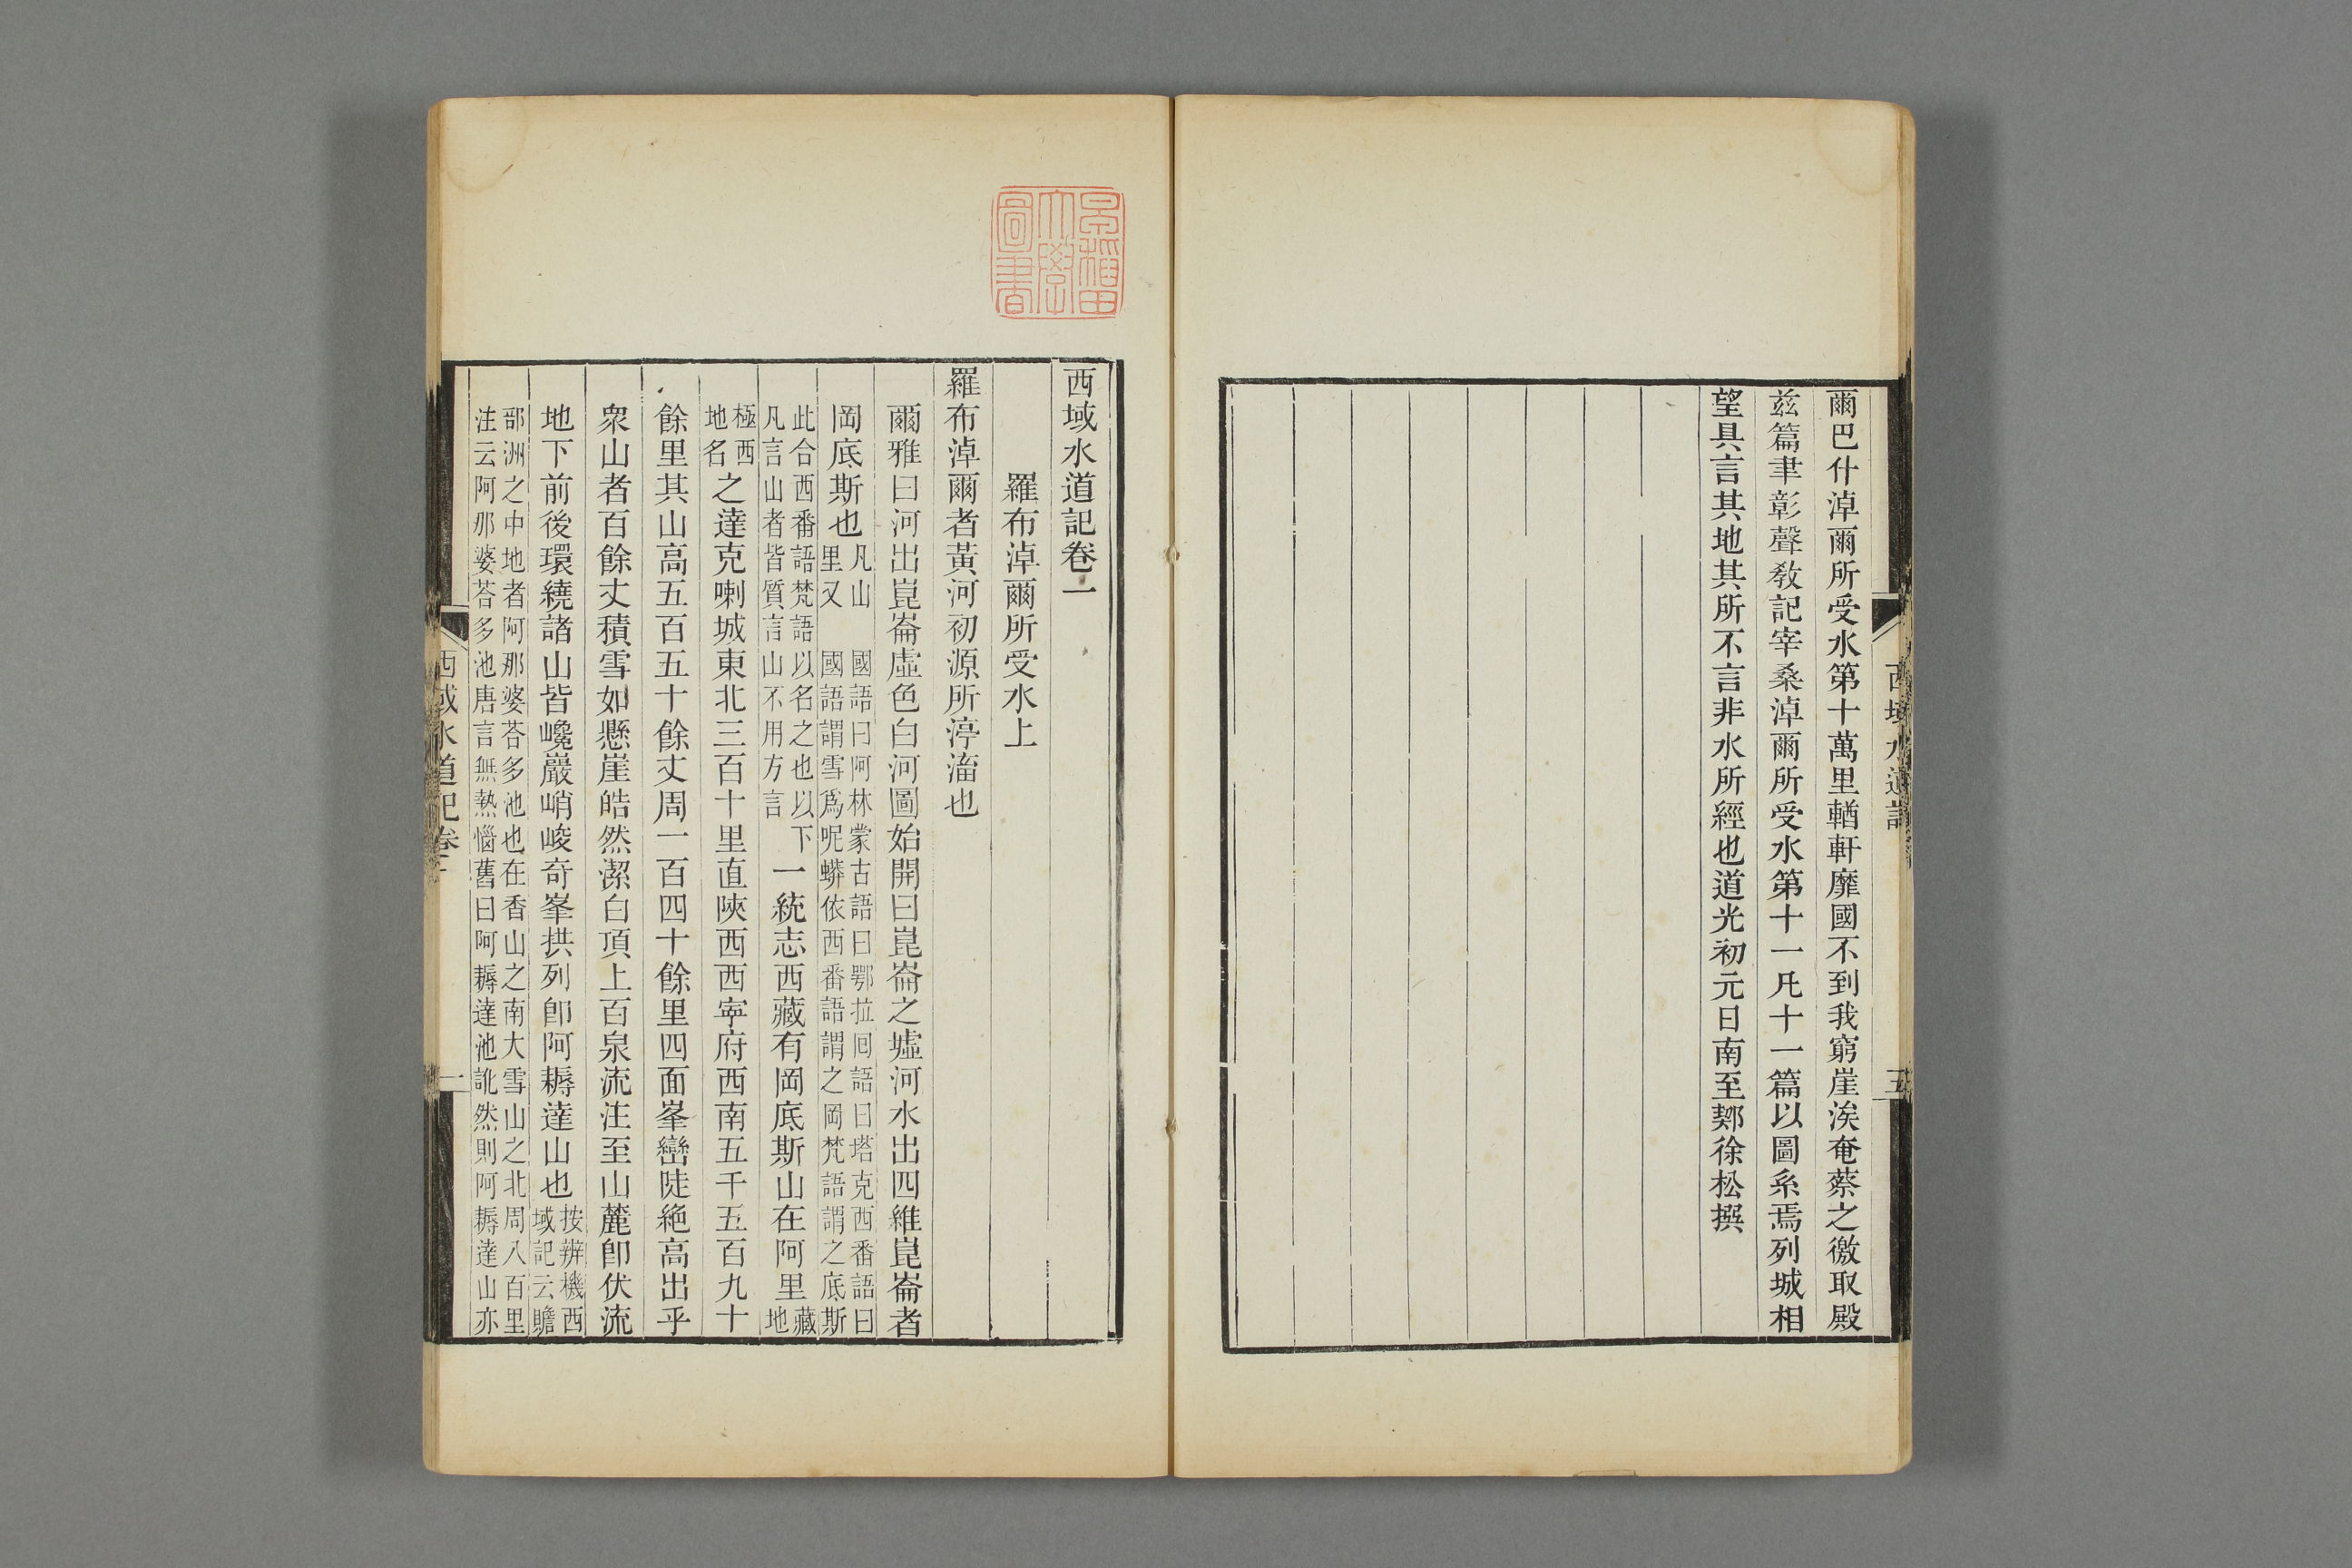 爾巴什淖爾所受水第十萬里輶軒靡國不到我窮崖涘奄蔡之徼取殿
茲篇聿彰聲敎記宰桑淖爾所受水第十一凡十一篇以圖系焉列城相
望具言其地其所不言非水所經也道光初元日南至鄭徐松撰
早稻田大學圖書
西域水道記卷一
羅布淖爾所受水上
羅布淖爾者黃河初源所渟滀也
爾雅曰河出崑崙虛色白河圖始開曰崑崙之墟河水出四維崑崙者
岡底斯也凡山國語曰阿林蒙古語曰鄂拉回語曰塔克西番語曰里又國語謂雪爲呢蟒依西番語謂之岡梵語謂之底斯
此合西番語梵語以名之也以下凡言山者皆質言山不用方言一統志西藏有岡底斯山在阿里藏地
極西地名之達克喇城東北三百十里直陝西西寧府西南五千五百九十
餘里其山高五百五十餘丈周一百四十餘里四面峯巒陡絶高出乎
衆山者百餘丈積雪如懸崖皓然潔白頂上百泉流注至山麓卽伏流
地下前後環繞諸山皆巉巖峭峻奇峯拱列卽阿耨達山也按辨機西域記云贍
部洲之中地者阿那婆荅多池也在香山之南大雪山之北周八百里
注云阿那婆荅多池唐言無熱惱舊曰阿耨達池訛然則阿耨達山亦
西域水道記卷一
一